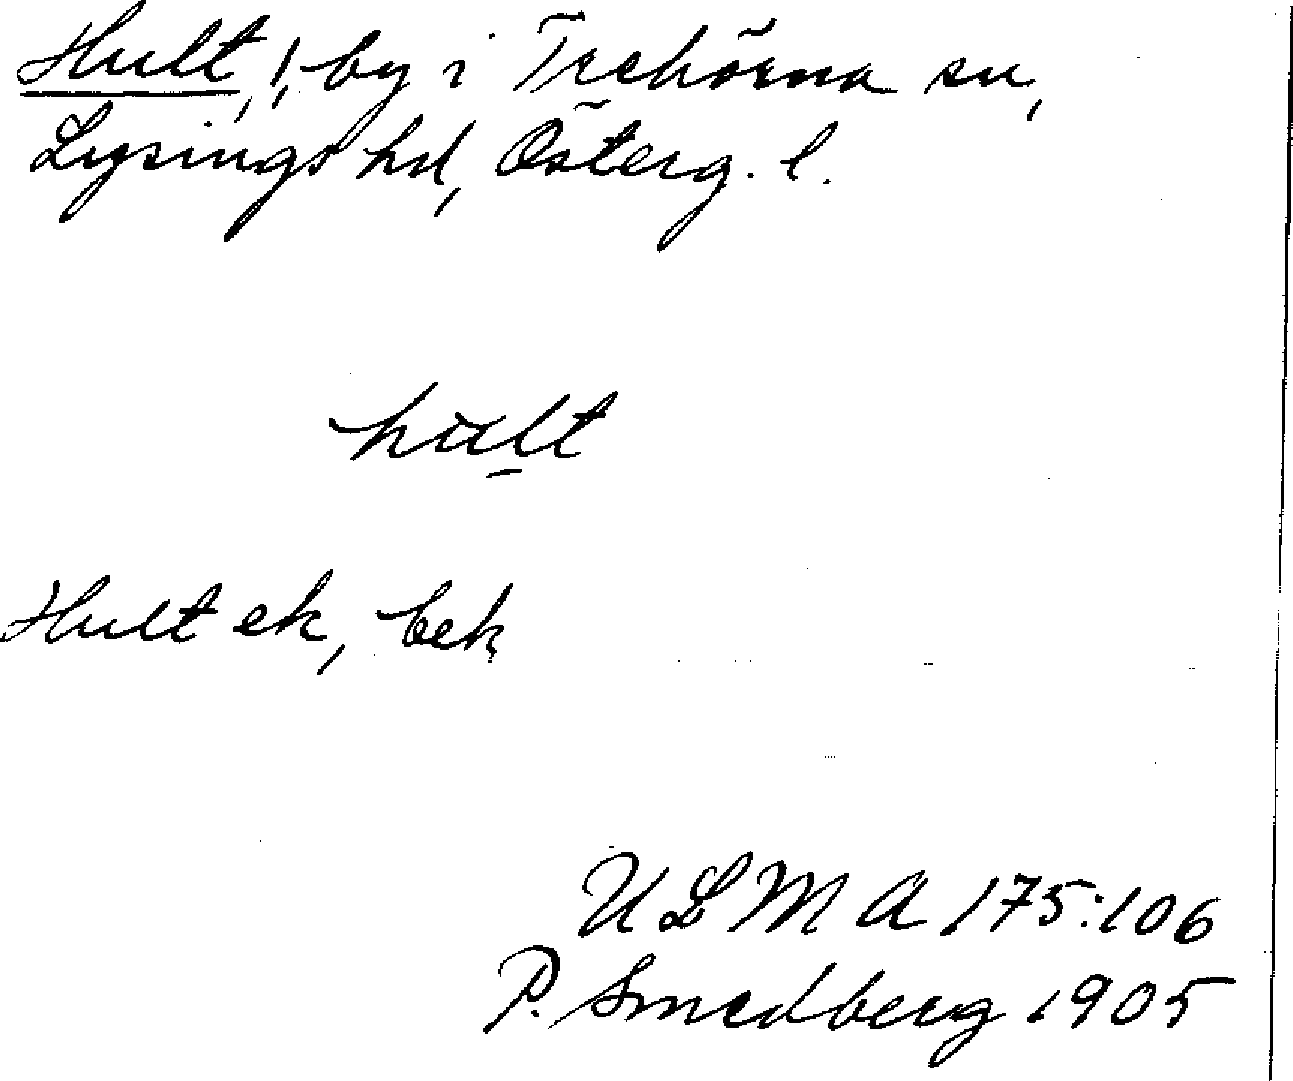 Hult, !, by i Trehörna sn,
Lysings hd, Österg. l.
hult
Hult ek, bek
ULMA 175:106
P. Smedberg 1905